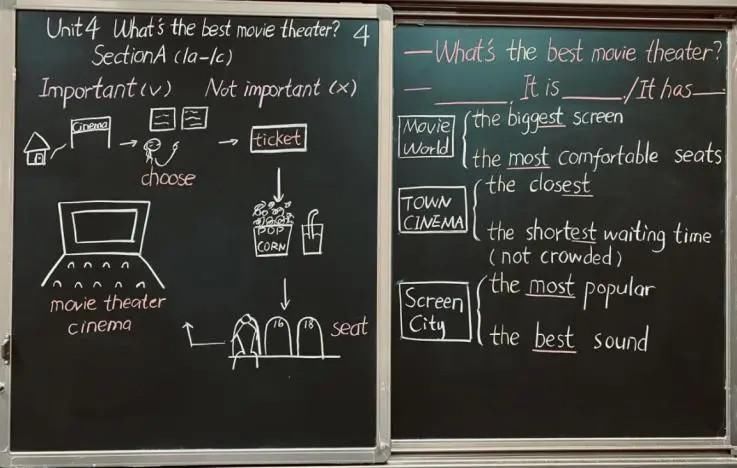 Unit 4 What's the best movie theater? 4
Section A (1a-1c)
Important (v) Not important (x)
Cinema
choose
ticket
POP
CORN
16 18
seat
movie theater
cinema
— What's the best movie theater?
— ______. It is ______./It has ___
Movie
World
the biggest screen
the most comfortable seats
TOWN
CINEMA
the closest
the shortest waiting time
(not crowded)
Screen
City
the most popular
the best sound